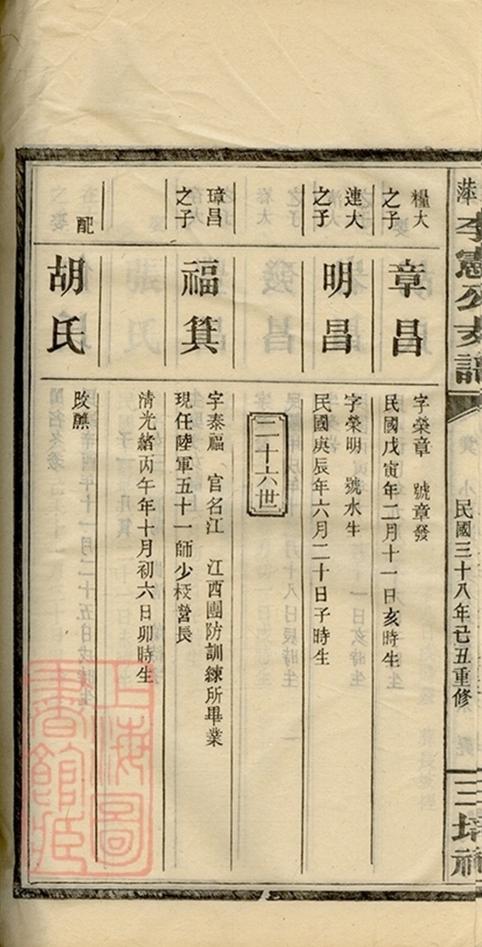 李憲公支譜
民國三十八年己丑重修
糧大
之子
章昌
字榮章 號章發
民國戊寅年二月十一日亥時生
連大
之子
明昌
字榮明 號水生
民國庚辰年六月二十日子時生
二十六世
璋昌
之子
福箕
字泰福 官名江 江西團防訓練所畢業
現任陸軍五十一師少校營長
清光緒丙午年十月初六日卯時生
配
胡氏
改醮
上海圖
書館藏